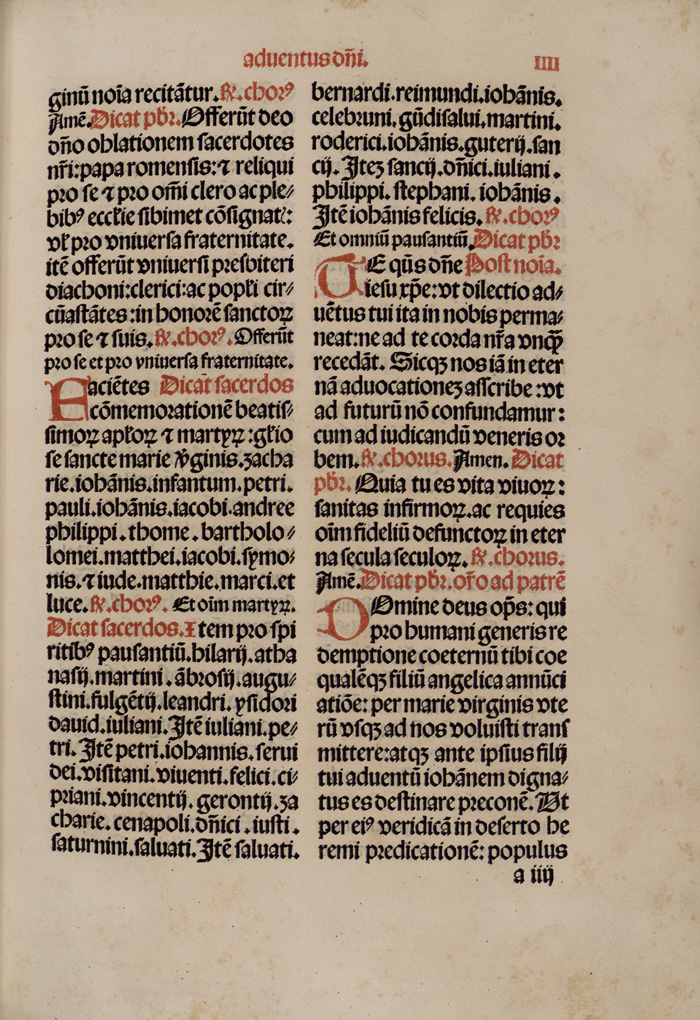 aduentus dñi.
IIII
ginũ noĩa recitãtur. ℞. chorꝰ
Amẽ. Dicat pb̃r. Offerũt deo
dño oblationem sacerdotes
nr̃i: papa romensis: ⁊ reliqui
pro se ⁊ pro om̃i clero ac ple⸗
bibꝰ eccłie sibimet cõsignat̃:
vł pro vniuersa fraternitate.
itẽ offerũt vniuersi presbiteri
diachoni: clerici: ac popłi cir⸗
cũastãtes: in honorẽ sanctoꝝ
pro se ⁊ suis. ℞. chorꝰ. Offerũt
pro se et pro vniuersa fraternitate.
Faciẽtes Dicat sacerdos
cõmemorationẽ beatis⸗
simoꝝ apłoꝝ ⁊ martyꝝ: głio
se sancte marie v̾ginis. zacha
rie. iohãnis. infantum. petri.
pauli. iohãnis. iacobi. andree
philippi. thome. bartholo⸗
lomei. matthei. iacobi. symo⸗
nis. ⁊ iude. matthie. marci. et
luce. ℞. chorꝰ. Et oĩm martyꝝ.
Dicat sacerdos. Item pro spi
ritibꝰ pausantiũ. hilarij. atha
nasij. martini. ãbrosij. augu⸗
stini. fulgẽtij. leandri. ysidori
dauid. iuliani. Itẽ iuliani. pe⸗
tri. Itẽ petri. iohannis. serui
dei. visitani. viuenti. felici. ci⸗
priani. vincentij. gerontij. za
charie. cenapoli. dñici. iusti.
saturnini. saluati. Itẽ saluati.
bernardi. reimundi. iohãnis.
celebruni. gũdisalui. martini.
roderici. iohãnis. guterij. san
cij. Itez sancij. dñici. iuliani.
philippi. stephani. iohãnis.
Itẽ iohãnis felicis. ℞. chorꝰ
Et omniũ pausantiũ. Dicat pb̃r
TE qũs dñe Post noĩa.
iesu xp̃e: vt dilectio ad⸗
uẽtus tui ita in nobis perma⸗
neat: ne ad te corda nr̃a vnqꝫ
recedãt. Sicqꝫ nos iã in eter
nã aduocationez asscribe: vt
ad futurũ nõ confundamur:
cum ad iudicandũ veneris or
bem. ℞. chorus. Amen. Dicat
pb̃r. Quia tu es vita viuoꝝ:
sanitas infirmoꝝ. ac requies
oĩm fideliũ defunctoꝝ in eter
na secula seculoꝝ. ℞. chorus.
Amẽ. Dicat pb̃r. or̃o ad patrẽ
DOmine deus op̃s: qui
pro humani generis re
demptione coeternũ tibi coe
qualẽqꝫ filiũ angelica annũci
atiõe: per marie virginis vte
rũ vsqꝫ ad nos voluisti trans
mittere: atqꝫ ante ipsius filij
tui aduentũ iohãnem digna⸗
tus es destinare preconẽ. Vt
per eiꝰ veridicã in deserto he
remi predicationẽ: populus
a iiij